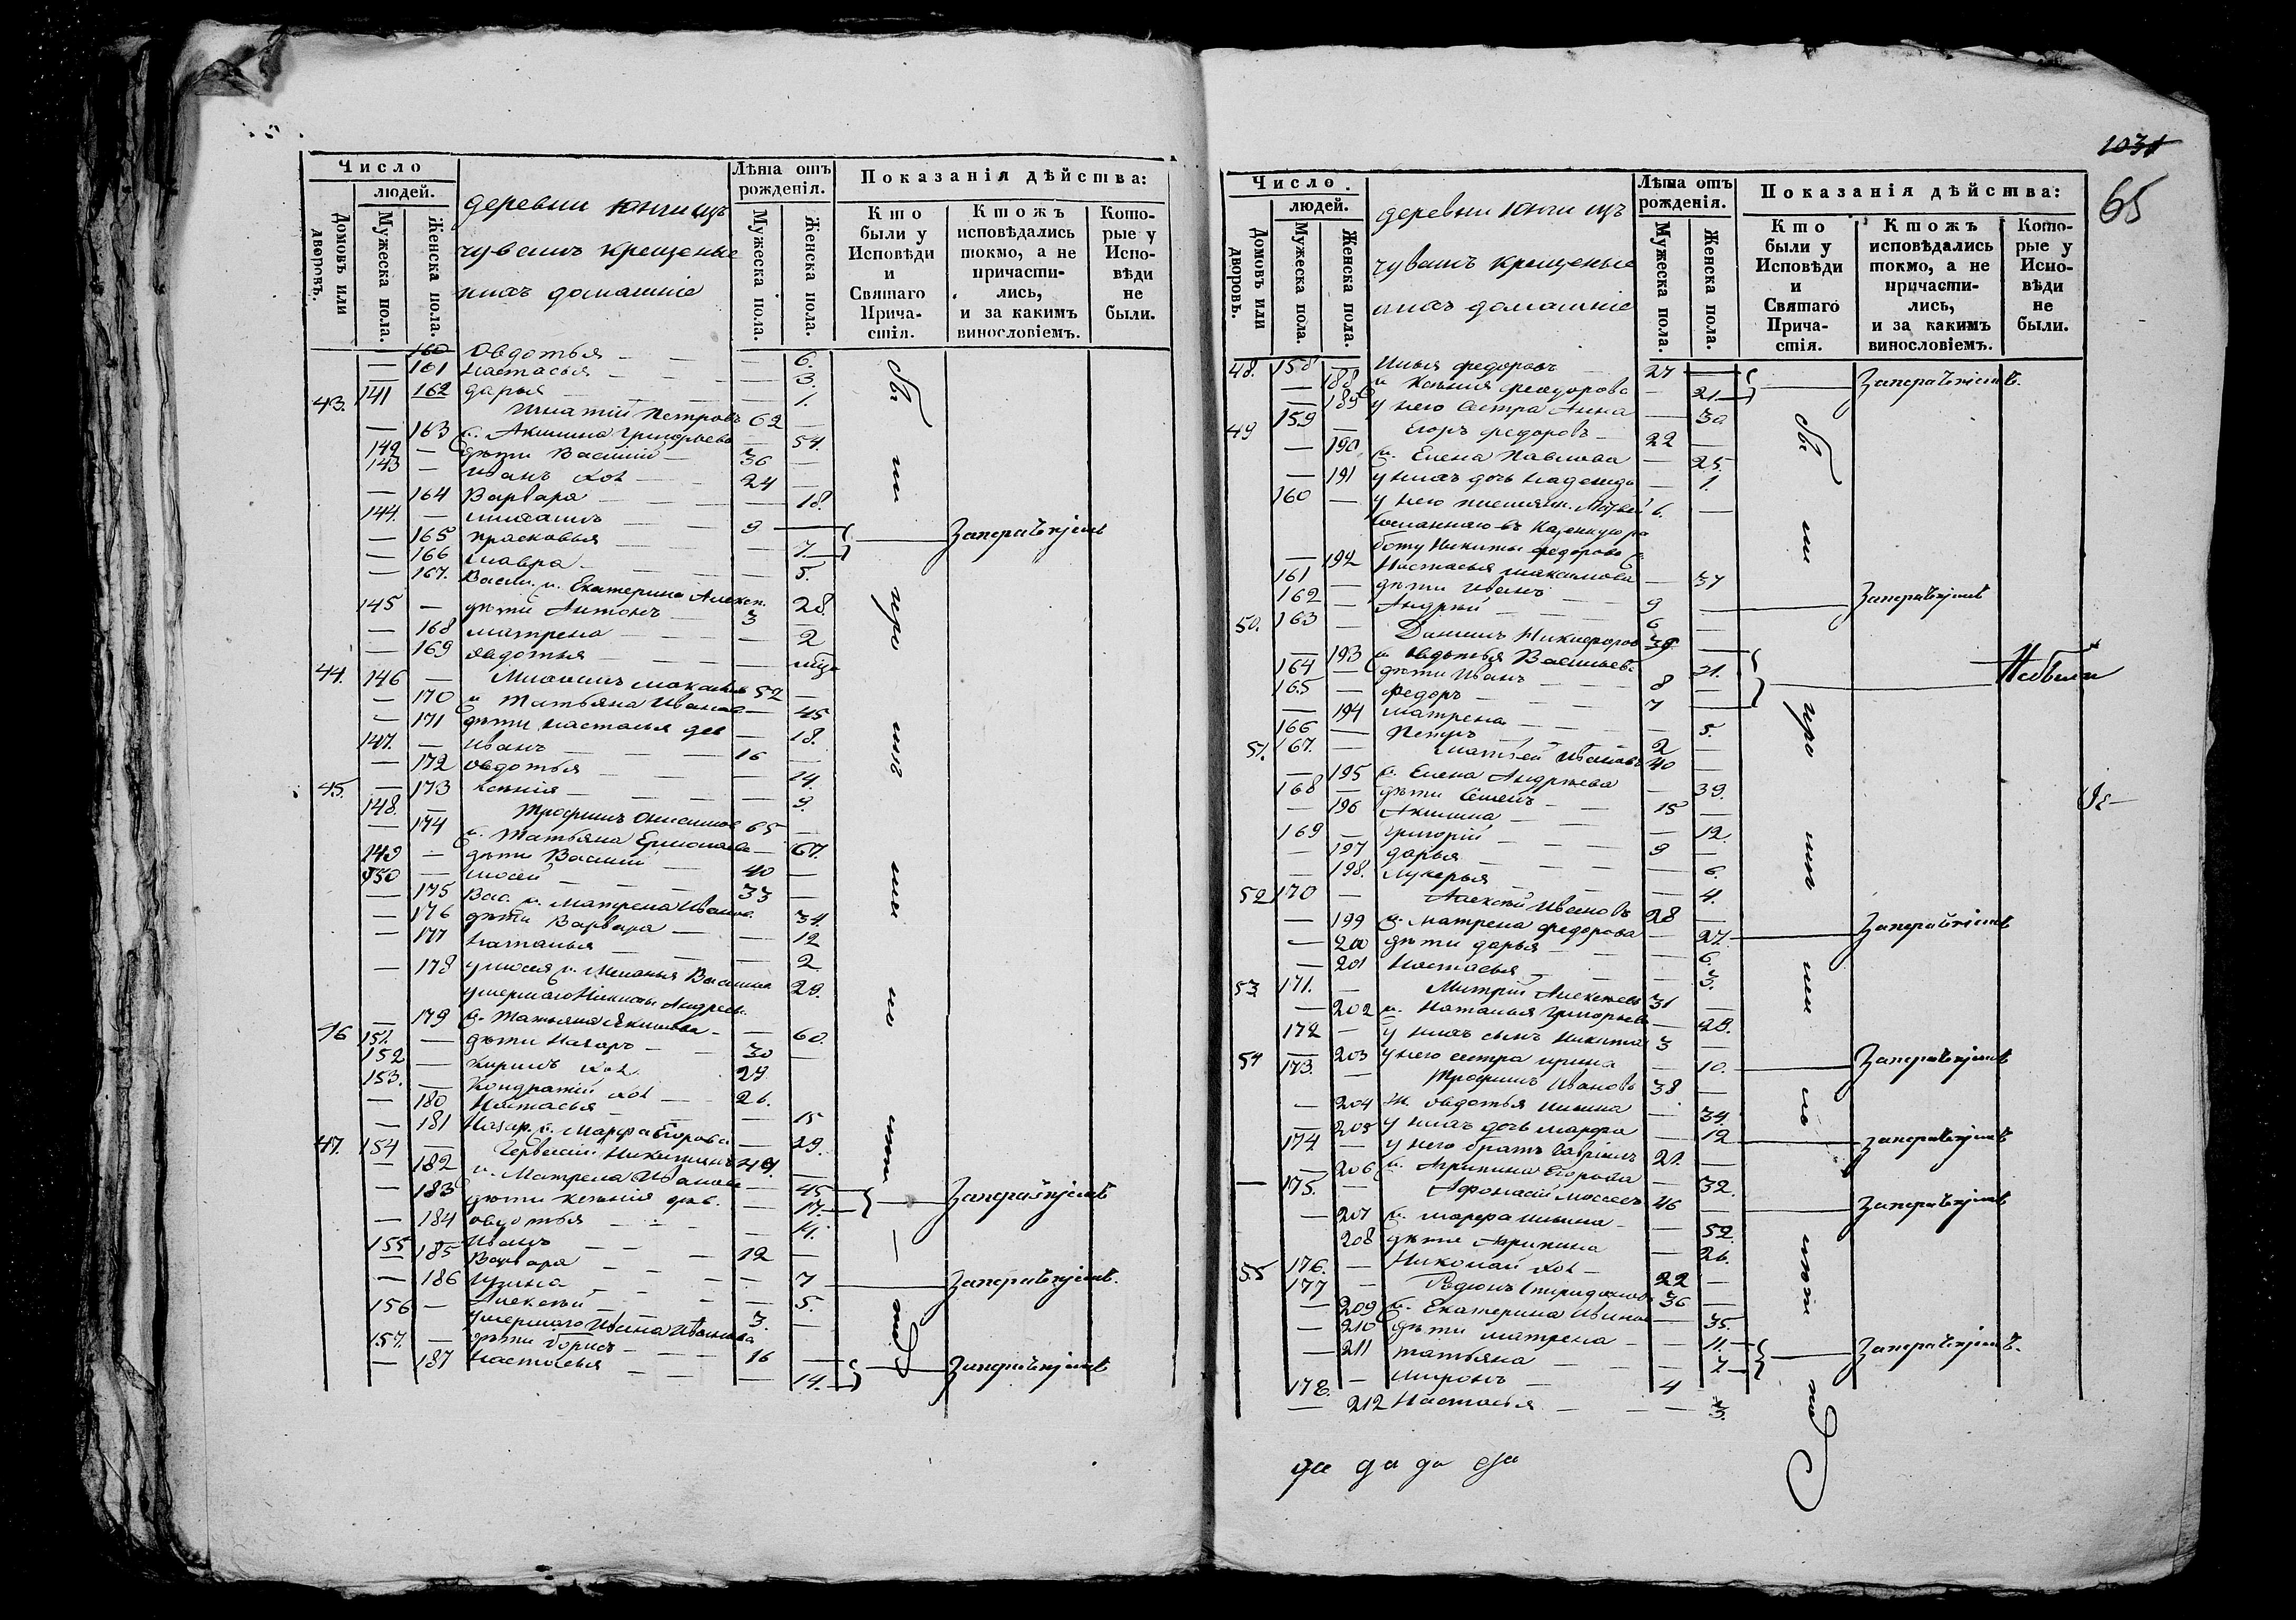 Число
людей.
Домовъ или дворовъ.
Мужеска пола.
Женска пола.
деревни Юнгицъ
чувашъ крещеные
и ихъ домашніе
Лѣта отъ рожденія.
Мужеска пола.
Женска пола.
Показанія дѣйства:
Кто были у Исповѣди и Святаго Причастія.
Ктожъ исповѣдались токмо, а не причастились, и за какимъ винословіемъ.
Которые у Исповѣди не были.
— 160 Овдотья — — — 6.
— 161 Настасья — — — 3.
— 162 Дарья — — — 1.
43. 141 — Игнатій Петровъ 62 —
— 163 ж. Акилина Григорьева — 54.
142 — дѣти Василій — 36 —
143 — Иванъ хол — 24 —
— 164 Варвара — — 18.
144. — 9 —
— 165 Прасковья — — 7. Заперасткіемъ
— 166 Мавра — — 5.
— 167. Васил. ж. Екатерина Алексѣ. 28.
145 — дѣти Антонъ — 3
— 168 Матрена — — 2
— 169 Овдотья — —
44. 146 — 52 —
— 170 ж. Татьяна Иванова — 45
— 171 дѣти Настасья дев — 18.
147. — Иванъ — 16 —
— 172 Овдотья — — 14.
— 173 Ксенія — — 9.
45. 148. — Трофимъ Онисимовъ 65 —
— 174 ж. Татьяна Ермолаева — 67.
149 — дѣти Василій — 40 —
150 — Мосей — 33 —
— 175 Вас. ж. Матрена Иванов. 34.
— 176 дѣти Варвара — — 12
— 177 Наталья — — 2
— 178 у Мосея ж. Меланья Васильева 29.
умершаго Никиты Андреев.
— 179 ж. Татьяна Якимова — — 60.
46 151. — дѣти Назаръ — 30 —
152 — Кирилъ хол 29
153. — Кондратій хол — 26.
— 180 Настасья — — 15
— 181 Назар. ж. Марфа Егорова — 29.
47. 154 — Никитинъ 49.
— 182 ж. Матрена Иванова — 45 Заперасткіемъ
— 183 дѣти Ксенія дѣв. — 17.
— 184 Овдотья — — 14.
155 — Иванъ — 12 —
— 185 Варвара — — 7 Заперасткіемъ.
— 186 Ирина — — 5.
156 — Алексѣй — 3. —
умершаго Ивана Иванова
157. — дѣти Борисъ — 16 — Заперасткіемъ
— 187 Настасья — — 14.
1031
65
Число.
людей.
Домовъ или дворовъ.
Мужеска пола.
Женска пола.
деревни Юнгицъ
чувашъ крещеные
и ихъ домашніе
Лѣта отъ рожденія.
Мужеска пола.
Женска пола.
Показанія дѣйства:
Кто были у Исповѣди и Святаго Причастія.
Ктожъ исповѣдались токмо, а не причастились, и за какимъ винословіемъ.
Которые у Исповѣди не были.
48. 158 — Илья Федоровъ 27 — Заперасткіемъ.
— 188 ж. Ксенія Федорова — 21
— 189 у него сестра Анна — 30
49 159 — Егоръ Федоровъ — 22 —
— 190 ж. Елена Павлова — 25.
— 191 у нихъ дочь Надежда — 1.
160 — у него племян. Матвей 6. —
въ казенную ра
боту Никиты Федорова ж.
— 192 Настасья Максимова — 37
161 — дѣти Иванъ — 9 — Заперасткіемъ
162 — Андрей — 6 —
50. 163 — Данилъ Никифоровъ 36 —
— 193 ж. Овдотья Васильева — 31. Небыли
164 — дѣти Иванъ — 8 —
165 — Федоръ — 7 —
— 194 Матрена — — 5.
166 — Петръ — 2 —
51. 167. — Матвей Ивановъ 40 —
— 195 ж. Елена Андреева — 39.
168 — дѣти Семенъ — 15 —
— 196 Акилина — — 12.
169 — Григорій — 9 —
— 197 Дарья — — 6.
— 198. Лукерья — — 4.
52 170 — Алексѣй Ивановъ 28 —
— 199 ж. Матрена Федорова — 27. Заперасткіемъ
— 200 дѣти Дарья — — 6.
— 201 Настасья — — 3.
53. 171. — Митрій Алексѣевъ 31 —
— 202 ж. Наталья Григорьева — 28.
172 — у нихъ сынъ Никита 3 —
— 203 у него сестра Ирина — 10. Заперасткіемъ
54 173. — Трофимъ Ивановъ 38 —
— 204 ж. Овдотья Ильина — 34.
— 205 у нихъ дочь Марфа — 12 Заперасткіемъ
174 — у него братъ Гаврилъ 21. —
— 206 ж. Агрипина Егорова — 32.
— 175. — Афонасій Мосеевъ 46 — Заперасткіемъ
— 207 ж. Марфа Ильина — — 52.
208 дѣти Агрипина — 26.
176. — Николай хол — 22 —
55 177 — Родіонъ Спиридоновъ 36 —
— 209 ж. Екатерина Ильина — 35.
— 210 дѣти Матрена — — 11. Заперасткіемъ.
— 211 Татьяна — — 7
178. — Миронъ — 4
— 212 Настасья — — 3.
да да да да